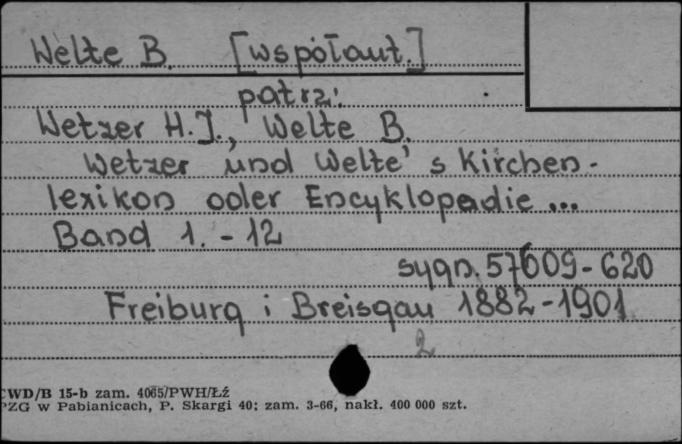 Welte B. [współaut.]
patrz:
Wetzer H.J., Welte B.
Wetzer und Welte's Kirchen-
lexikon oder Encyklopedie ...
Band 1. - 12
sygn. 57609-620
Freiburg i Breisgau 1882-1901
2
CWD/B 15-b zam. 4065/PWH/Łź
PZG w Pabianicach, P. Skargi 40; zam. 3-66, nakł. 400 000 szt.